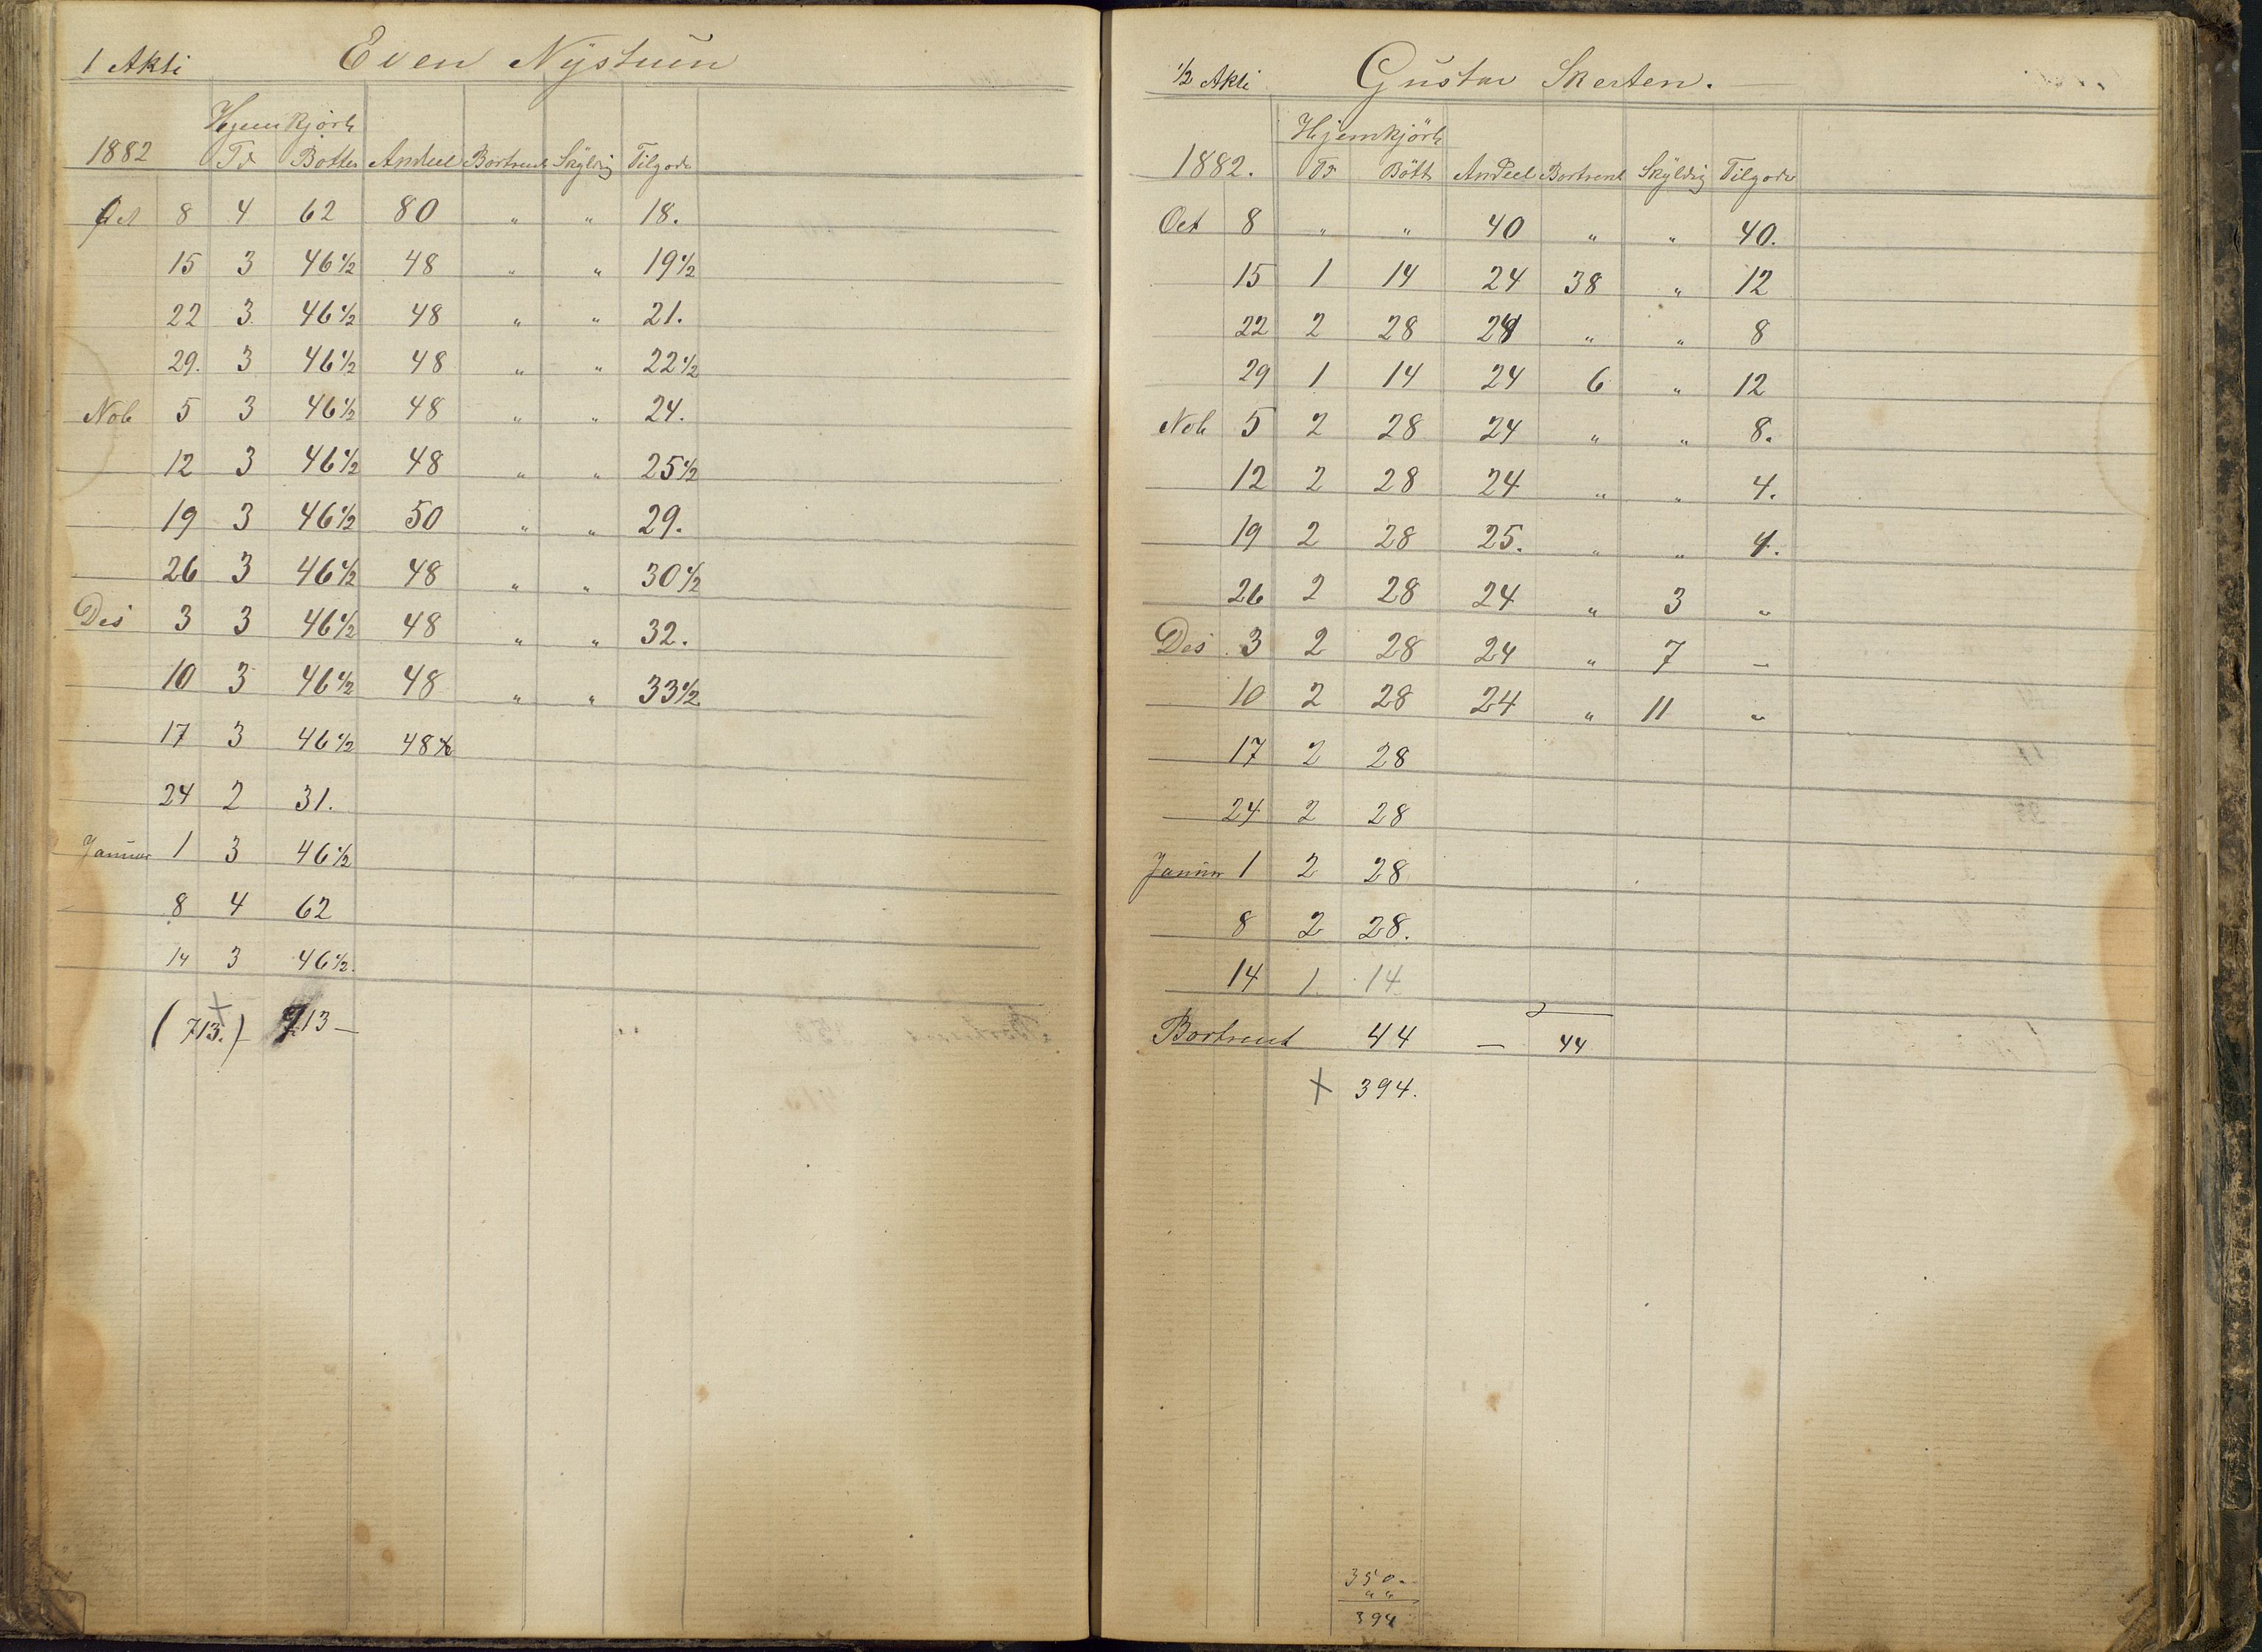 1 Akti Even Nÿstuen
Hjemkjørt
1882 Td Bøtter Andeel Bortrent Skÿldig Tilgode
Oct 8 4 62 80 " " 18.
15 3 46 1/2 48 " " 19 1/2
22 3 46 1/2 48 " " 21.
29. 3 46 1/2 48 " " 22 1/2
Nob 5 3 46 1/2 48 " " 24.
12 3 46 1/2 48 " " 25 1/2
19 3 46 1/2 50 " " 29.
26 3 46 1/2 48 " " 30 1/2
Des 3 3 46 1/2 48 " " 32.
10 3 46 1/2 48 " " 33 1/2
17 3 46 1/2 48
24 2 31.
Januar 1 3 46 1/2
8 4 62
14 3 46 1/2.
(713.) 713 —
1/2 Akti Gustav Skerten.
Hjemkjört
1882. Td Bött Andeel Bortrent Skÿldig Tilgode
Oct 8 " " 40 " " 40.
15 1 14 24 38 " 12
22 2 28 24 " " 8
29 1 14 24 6 " 12
Nob 5 2 28 24 " " 8.
12 2 28 24 " " 4.
19 2 28 25. " " 1.
26 2 28 24 " 3 "
Des 3 2 28 24 " 7 –
10 2 28 24 " 11 "
17 2 28
24 2 28
Januar 1 2 28
8 2 28.
14 1 14
Bortrent 44 — 44
+ 394.
350.
44
394